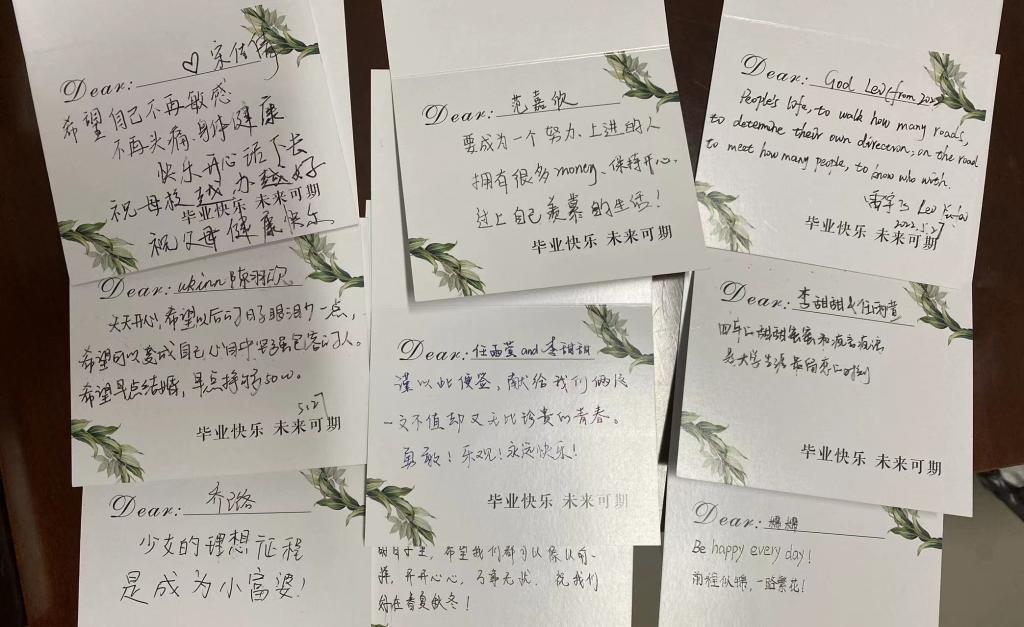 Dear: ♡ 宋佳倩
希望自己不再敏感
不再头痛.身体健康
快乐开心活下去
祝母校越办越好
毕业快乐 未来可期
祝父母健康快乐
Dear: 范嘉欣
要成为一个努力、上进的人
拥有很多money、保持开心、
过上自己羡慕的生活!
毕业快乐 未来可期
Dear: God Leo(from 202
People's life, to walk how many roads,
to determine their own direction; on the road
to meet how many people, to know who with.
Leo
2022.5.27
毕业快乐 未来可期
Dear: ukinn 陈羽欣
天天开心,希望以后的日子眼泪少一点,
希望可以变成自己心目中坚强包容的人。
希望早点结婚,早点挣够500w。
5.27
毕业快乐 未来可期
Dear: 任雨萱 and 李甜甜
谨以此便签,献给我们俩这
一文不值却又无比珍贵的青春。
勇敢!乐观!永远快乐!
毕业快乐 未来可期
Dear: 李甜甜&任雨萱
四年的甜甜蜜蜜和
是大学生活最留恋的时刻
毕业快乐 未来可期
Dear: 乔璐
少女的理想征程
是成为小富婆!
希望我们都可以像以前一
样,开开心心,万事无忧.祝我们
好在春夏秋冬!
Dear: 娜娜
Be happy every day!
前程似锦,一路繁花!